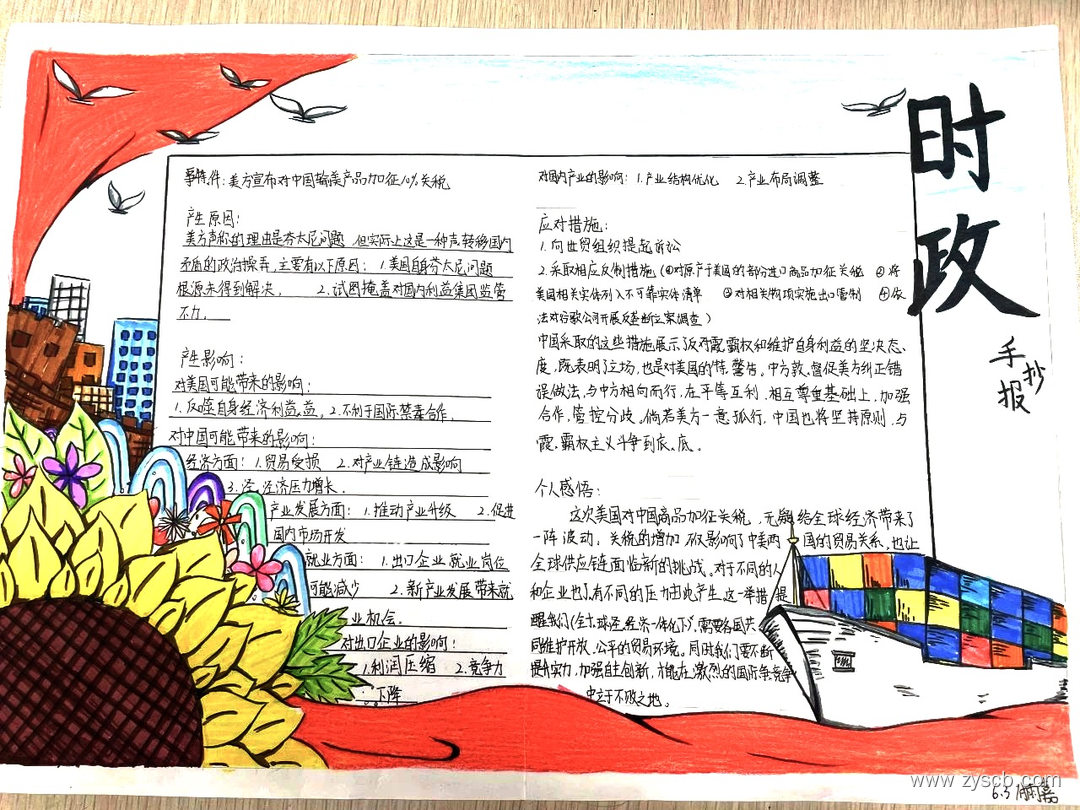 时政
手抄报
事件：美方宣布对中国输美产品加征10%关税
产生原因：
美方声称的理由是芬太尼问题，但实际上这是一种声转移国内
矛盾的政治操弄，主要有以下原因：1.美国自身芬太尼问题
根源未得到解决。 2.试图掩盖对国内利益集团监管
不力。
产生影响：
对美国可能带来的影响：
1.反噬自身经济利益益，2.不利于国际禁毒合作。
对中国可能带来的影响：
经济方面：1.贸易受损 2.对产业链造成影响
3.泾经济压力增长。
产业发展方面：1.推动产业升级 2.促进
国内市场开发
就业方面：1.出口企业就业岗位
可能减少 2.新产业发展带来就
业机会.
对出口企业的影响：
1.利润压缩 2.竞争力
下降
对国内产业的影响：1.产业结构优化 2.产业布局调整
应对措施：
1.向世贸组织提起诉讼
2.采取相应反制措施（①对原产于美国的部分进口商品加征关税 ②将
美国相关实体列入不可靠实体清单 ③对相关物项实施出口管制 ④依
法对谷歌公司开展反垄断立案调查）
中国采取的这些措施展示了反对霸权和维护自身利益的坚决态
度，既表明了立场，也是对美国的警告。中方敦督促美方纠正错
误做法，与中方相向而行，在平等互利、相互尊重基础上，加强
合作，管控分歧。倘若美方一意孤行，中国也将坚持原则，与
霞霸权主义斗争到底底。
个人感悟：
这次美国对中国商品加征关税，无疑给全球经济带来了
一阵波动，关税的增加不仅影响了中美两国的贸易关系，也让
全球供应链面临新的挑战。对于不同的人
和企业也有不同的压力由此产生，这一举措提
醒我们（全球经济一体化下），需要各国共
同维护开放、公平的贸易环境。同时我们要不断
提升实力，加强自主创新，才能在激烈的国际竞争
中立于不败之地。
www.zyscb.com
6.3